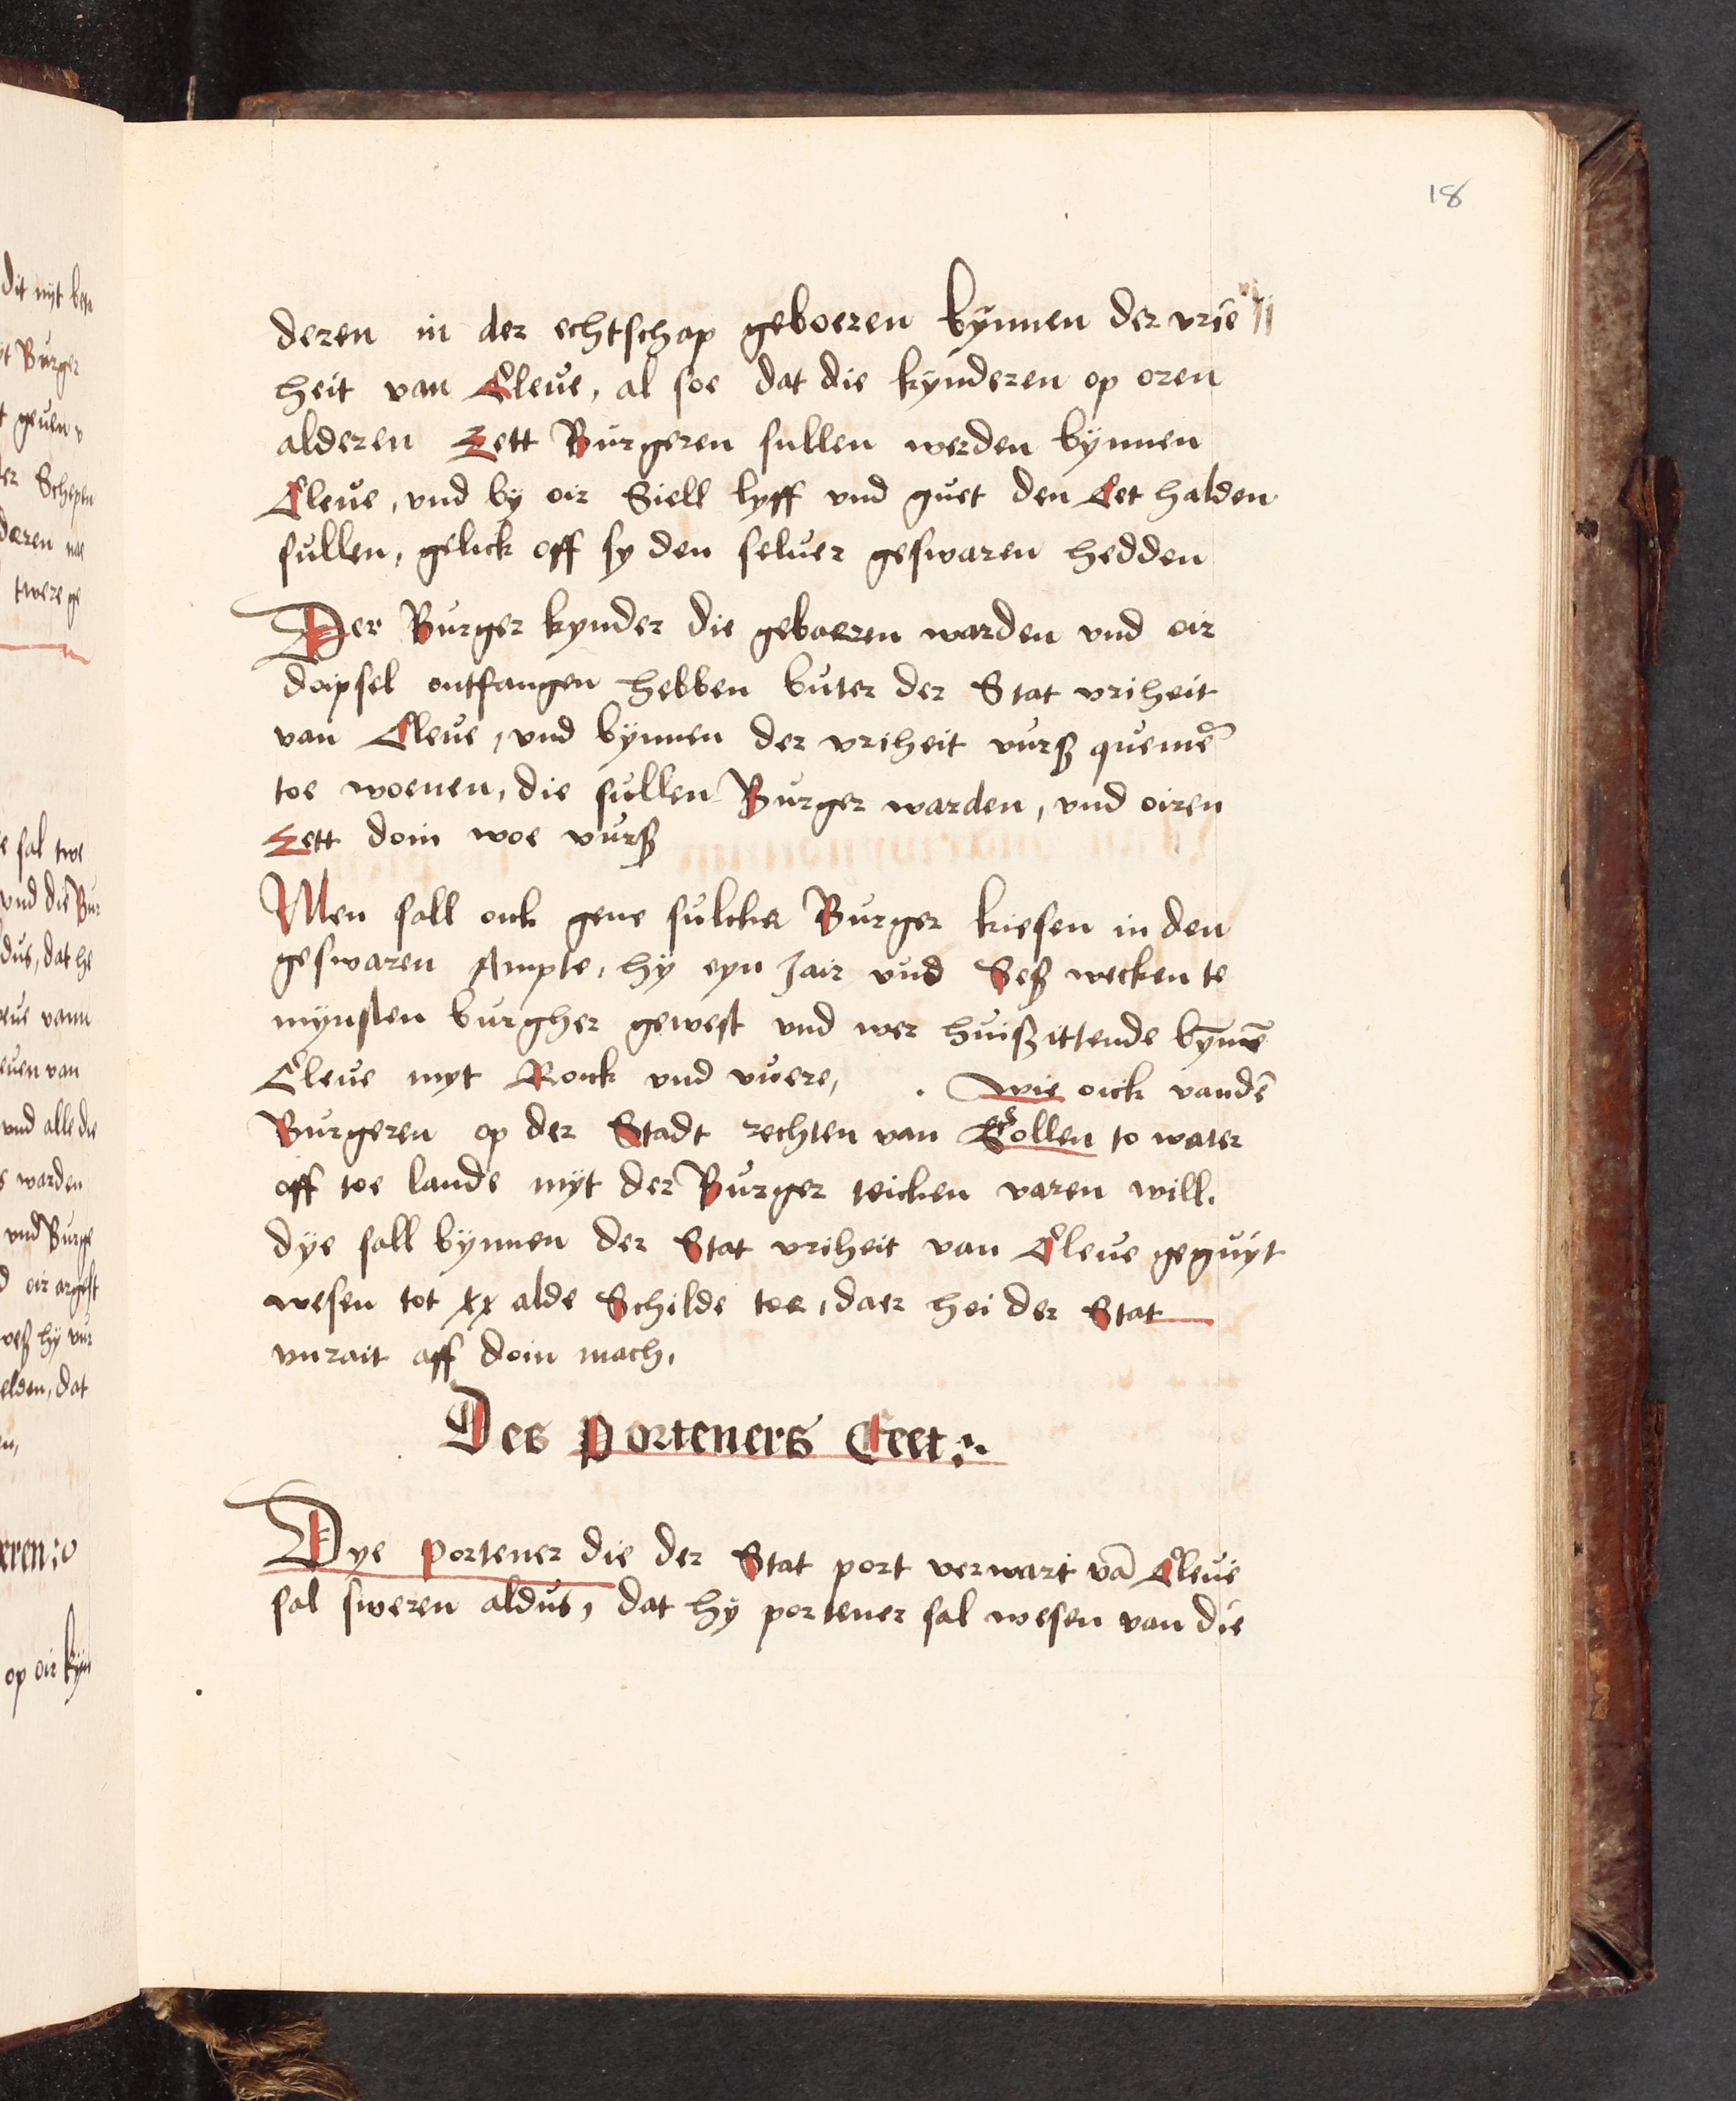 18
deren in der echtschap geboeren bynnen der vrie
heit van Cleue, al soe dat die kynderen op oren
alderen Eett Burgeren sullen werden bynnen
Cleue, vnd by oir Siell lyff vnd guet den Eet halden
sullen, gelick off sy den seluer geswaren hedden
Der Burger kynder die geboeren warden vnd oir
doipsel ontfangen hebben buter der Stat vriheit
van Cleue, vnd bynnen der vriheit vurß quemē
toe woenen, die sullen Burger warden, vnd oiren
Eett doin woe vurß
Men sall oick gene sulcke Burger kiesen in den
geswaren Ampte, hy eyn Jair vnd Seß wecken te
mynsten burgher gewest vnd wer huißittende bynnē
Cleue myt Rouk vnd vuere, . wie oick vandē
Burgeren op der Stadt rechten van Tollen to water
off toe lande myt der Burger teicken varen will.
dye sall bynnen der Stat vriheit van Cleue geguyt
wesen tot xx alde Schilde toe, daer hei der Stat
vnrait aff doin mach.
Des Porteners Eeet
Dye portener die der Stat port verwart vā Cleue
sal sweren aldus, dat hy portener sal wesen van die